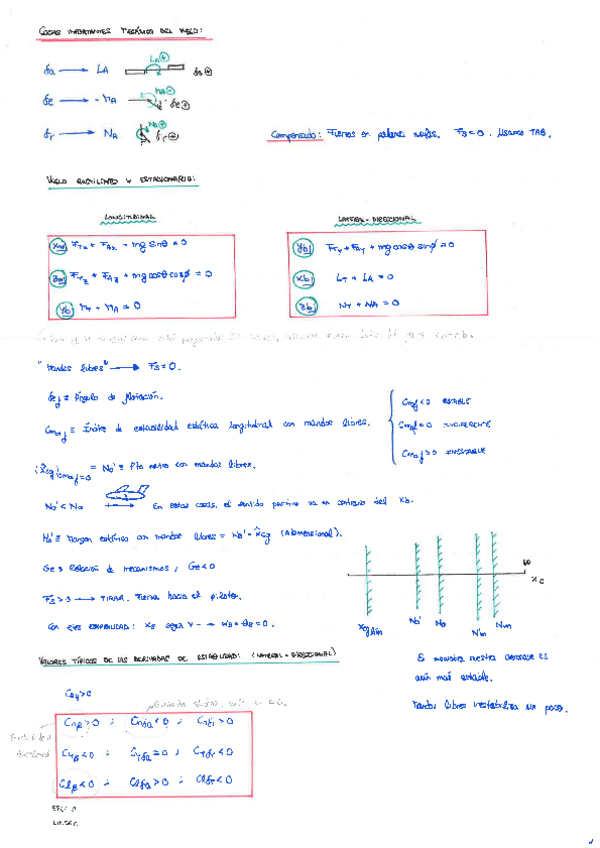 COSAS IMPORTANTES MECÁNICA DEL VUELO:
δa → LA LA⊕ δa⊕
δe → -MA MA⊕ δe⊕
δr → NA NA⊕ δr⊕
Compensado: Fuerzas en palanca nulas. FS=0. Usamos TAB.
VUELO RECTILÍNEO Y ESTACIONARIO:
LONGITUDINAL
FTx + FAx - mg sinθ = 0
FTz + FAz + mg cosθ cosϕ = 0
MT + MA = 0
LATERAL-DIRECCIONAL
FTy + FAy + mg cosθ sinϕ = 0
LT + LA = 0
NT + NA = 0
"Mandos libres" → FS = 0.
δef ≡ Ángulo de flotación.
Cmαf ≡ Índice de estabilidad estática longitudinal con mandos libres.
Cmαf < 0 ESTABLE
Cmαf = 0 INDIFERENTE
Cmαf > 0 INESTABLE
(x̂cg)Cmαf=0 = No' ≡ Pto neutro con mandos libres.
No' < No → En estas cosas, el sentido positivo va en contrario del xb.
Ho' ≡ Margen estático con mandos libres = No' - x̂cg (Adimensional).
Ge ≡ Relación de mecanismos; Ge<0
FS > 0 → TIRAR. Fuerza hacia el piloto.
Con ejes ESTABILIDAD: xs según V → αs = θs = 0.
No' No
VALORES TÍPICOS DE LAS DERIVADAS DE ESTABILIDAD: (LATERAL-DIRECCIONAL)
Cnβ > 0 ; Cnδa < 0 ; Cnδr > 0
CYβ < 0 ; CYδa = 0 ; CYδr < 0
Clβ < 0 ; Clδa > 0 ; Clδr < 0
aún más estable.
Mandos libres inestabiliza un poco.